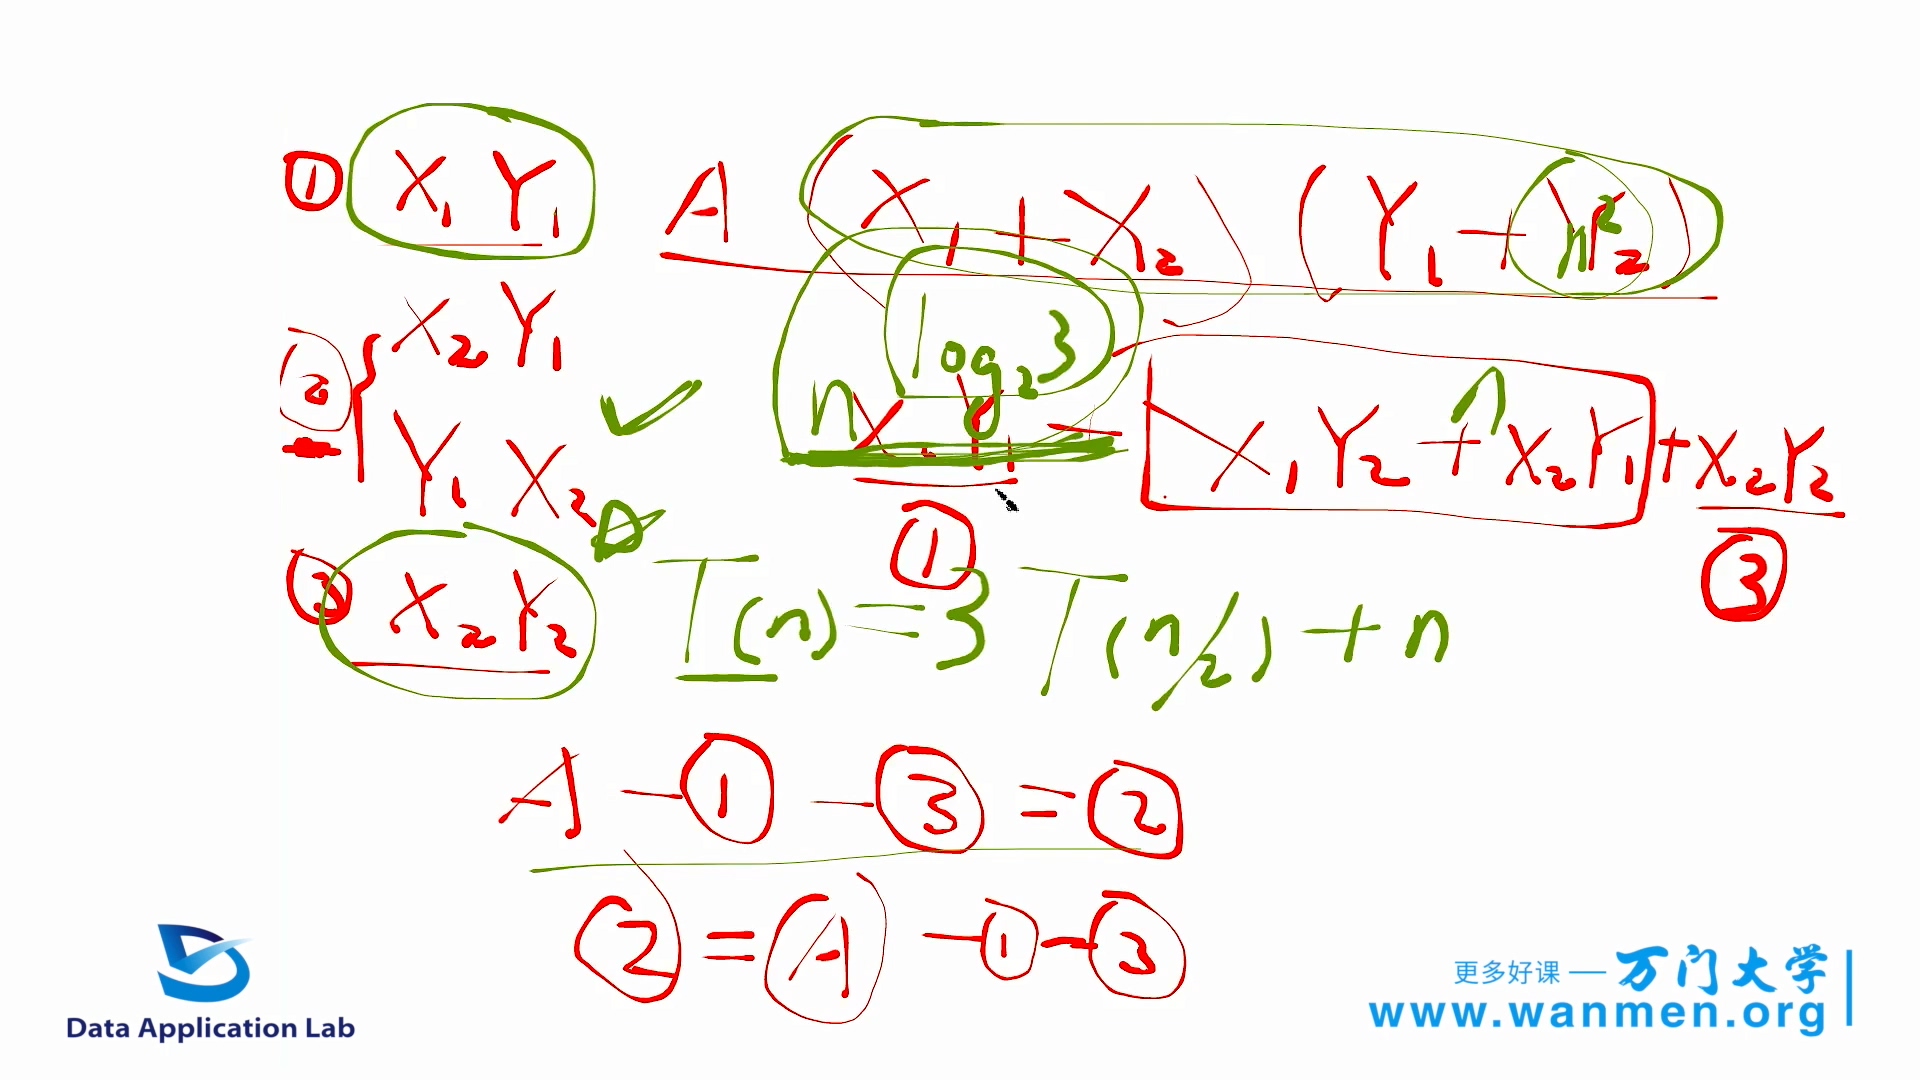 ① X₁ Y₁ A (X₁ + X₂) (Y₁ + Y₂) n²
② { X₂ Y₁
n^log₂3
Y₁ X₂ X₁ Y₁ + X₁ Y₂ + X₂ Y₁ + X₂ Y₂ n
① ③
③ X₂ Y₂ T(n) = 3 T(n/2) + n
A - ① - ③ = ②
② = A - ① - ③
Data Application Lab
更多好课 — 万门大学
www.wanmen.org